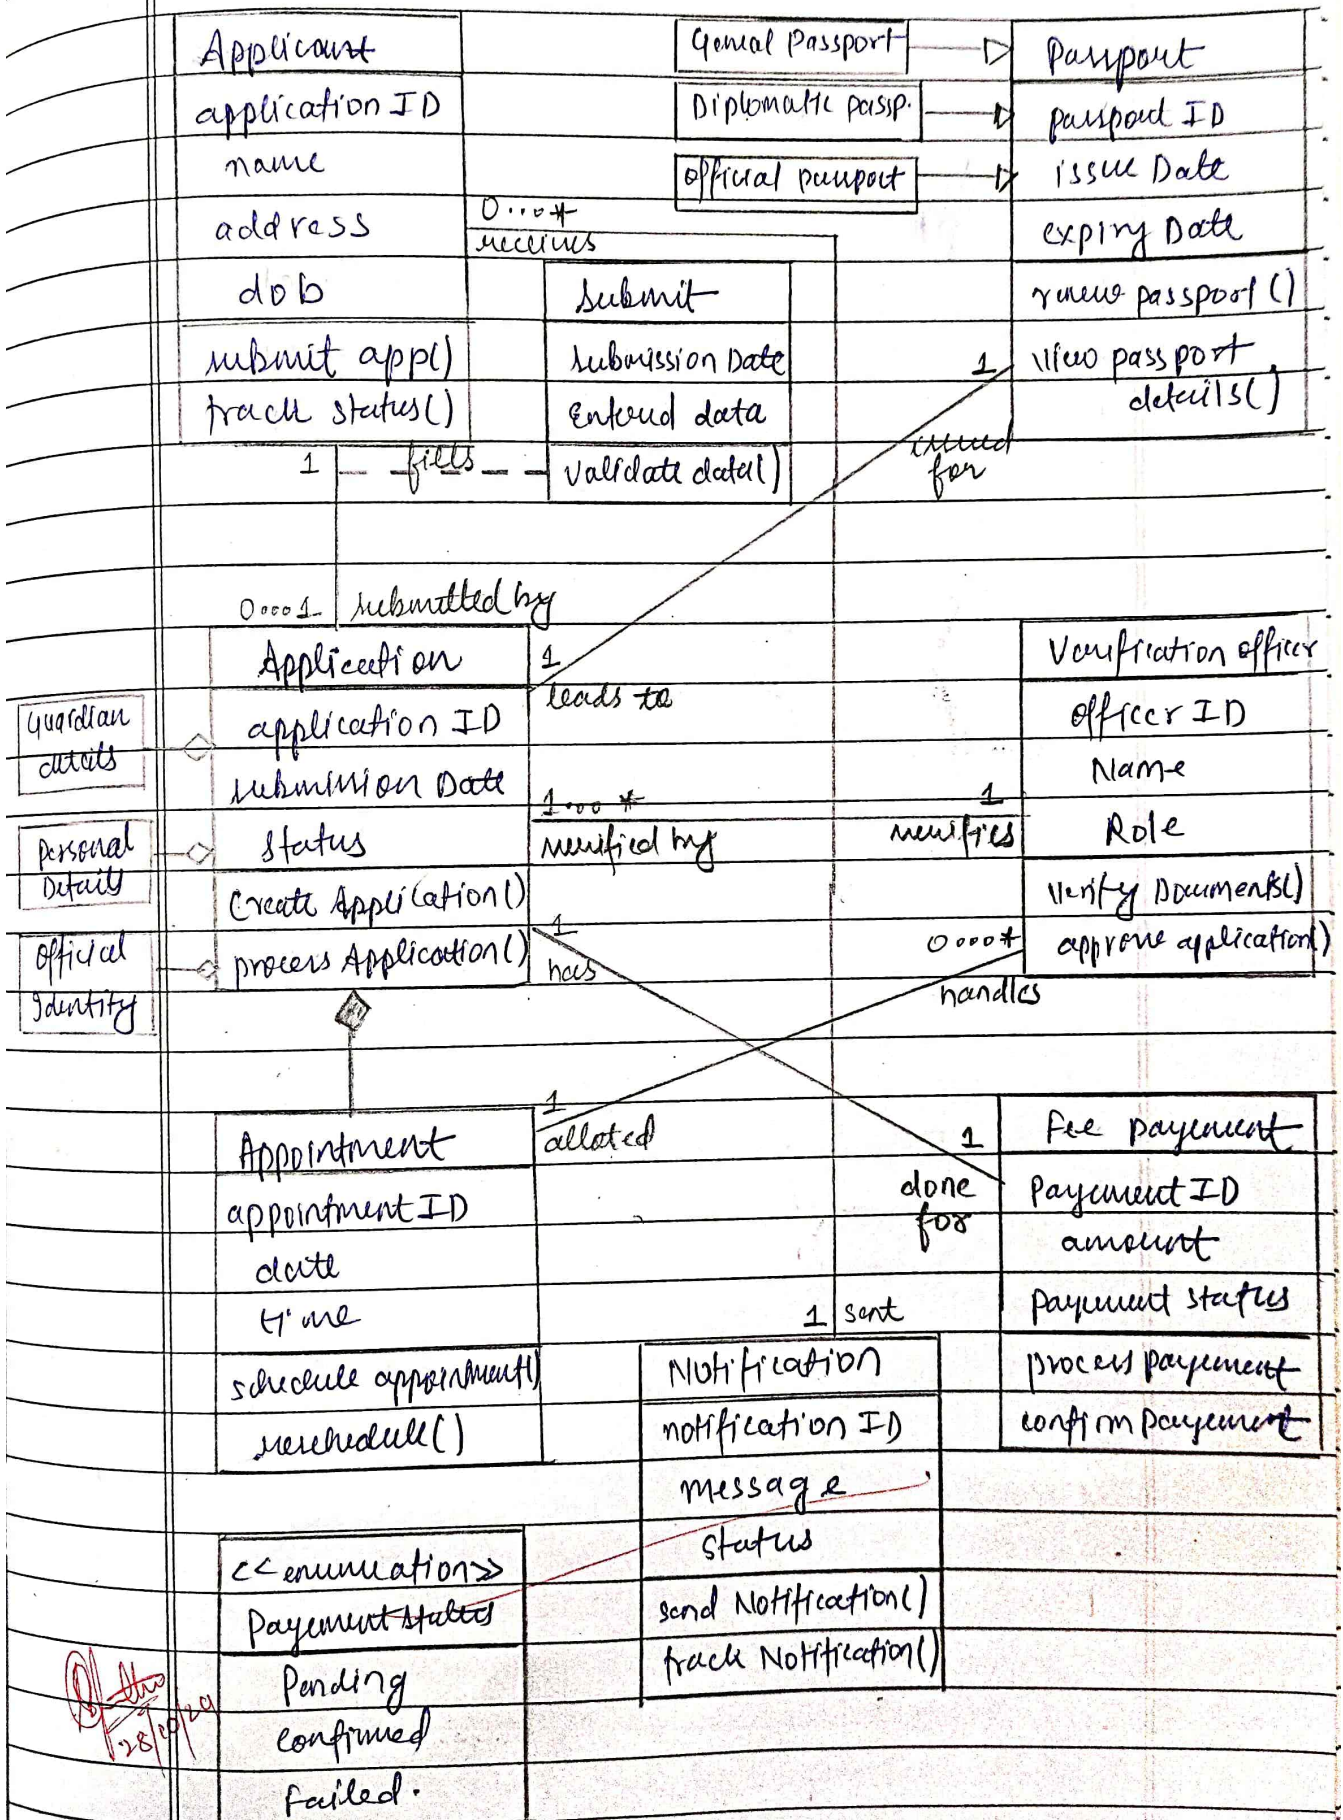 Applicant
application ID
name
address
dob
submit app()
track status()
General Passport
Diplomatic passp.
official passport
Passport
passport ID
issue Date
expiry Date
renew passport ()
view passport
details()
0...*
receives
Submit
Submission Date
Entered data
validate data()
1
fills
1
issued
for
0...1
submitted by
Application
application ID
submission Date
status
Create Application()
process Application()
1
leads to
Guardian
details
Personal
Details
Official
Identity
1...*
verified by
1
verifies
Verification officer
officer ID
Name
Role
verify Documents()
approve application()
1
has
0...*
handles
Appointment
appointment ID
date
time
schedule appointment()
reschedule()
1
alloted
1
done
for
Fee payement
Payement ID
amount
payement status
process payement
confirm payement
1 sent
Notification
notification ID
message
status
send Notification()
track Notification()
<<enumeration>>
Payement status
Pending
confirmed
Failed.
28/10/24